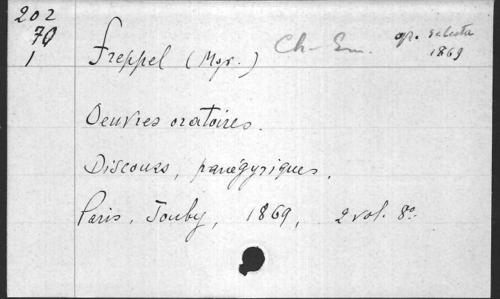 202
70
1
Freppel (Mgr.) Ch-Em. op. selecta
1869
Oeuvres oratoires.
Discours, panégyriques.
Paris, Jouby, 1869, 2 vol. 8º.